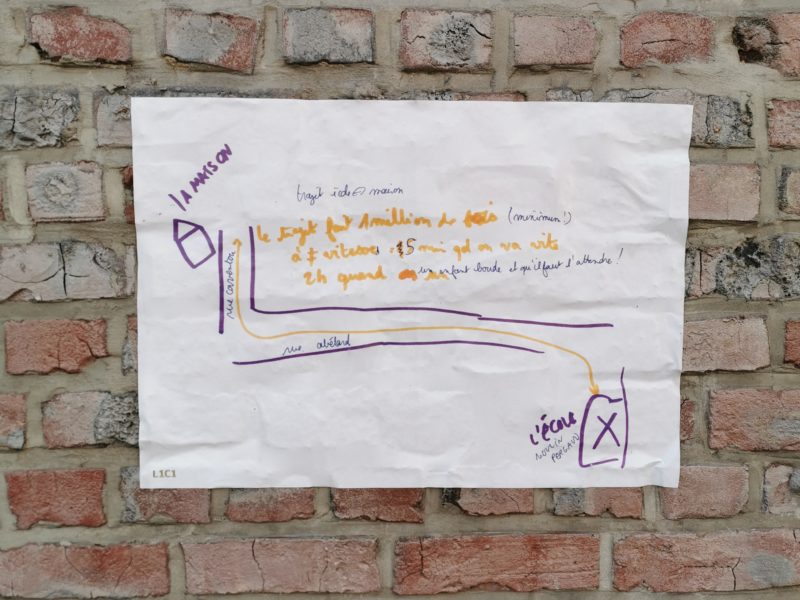 lA MAISON
trajet école ⇔ maison
le trajet fait 1 million de fois (minimum!)
à ≠ vitesses : 15 min qd on va vite
2h quand un enfant boude et qu'il faut l'attendre!
rue
rue abélard
L'ÉCOLE
MOULIN
PERGAUD
L1C1